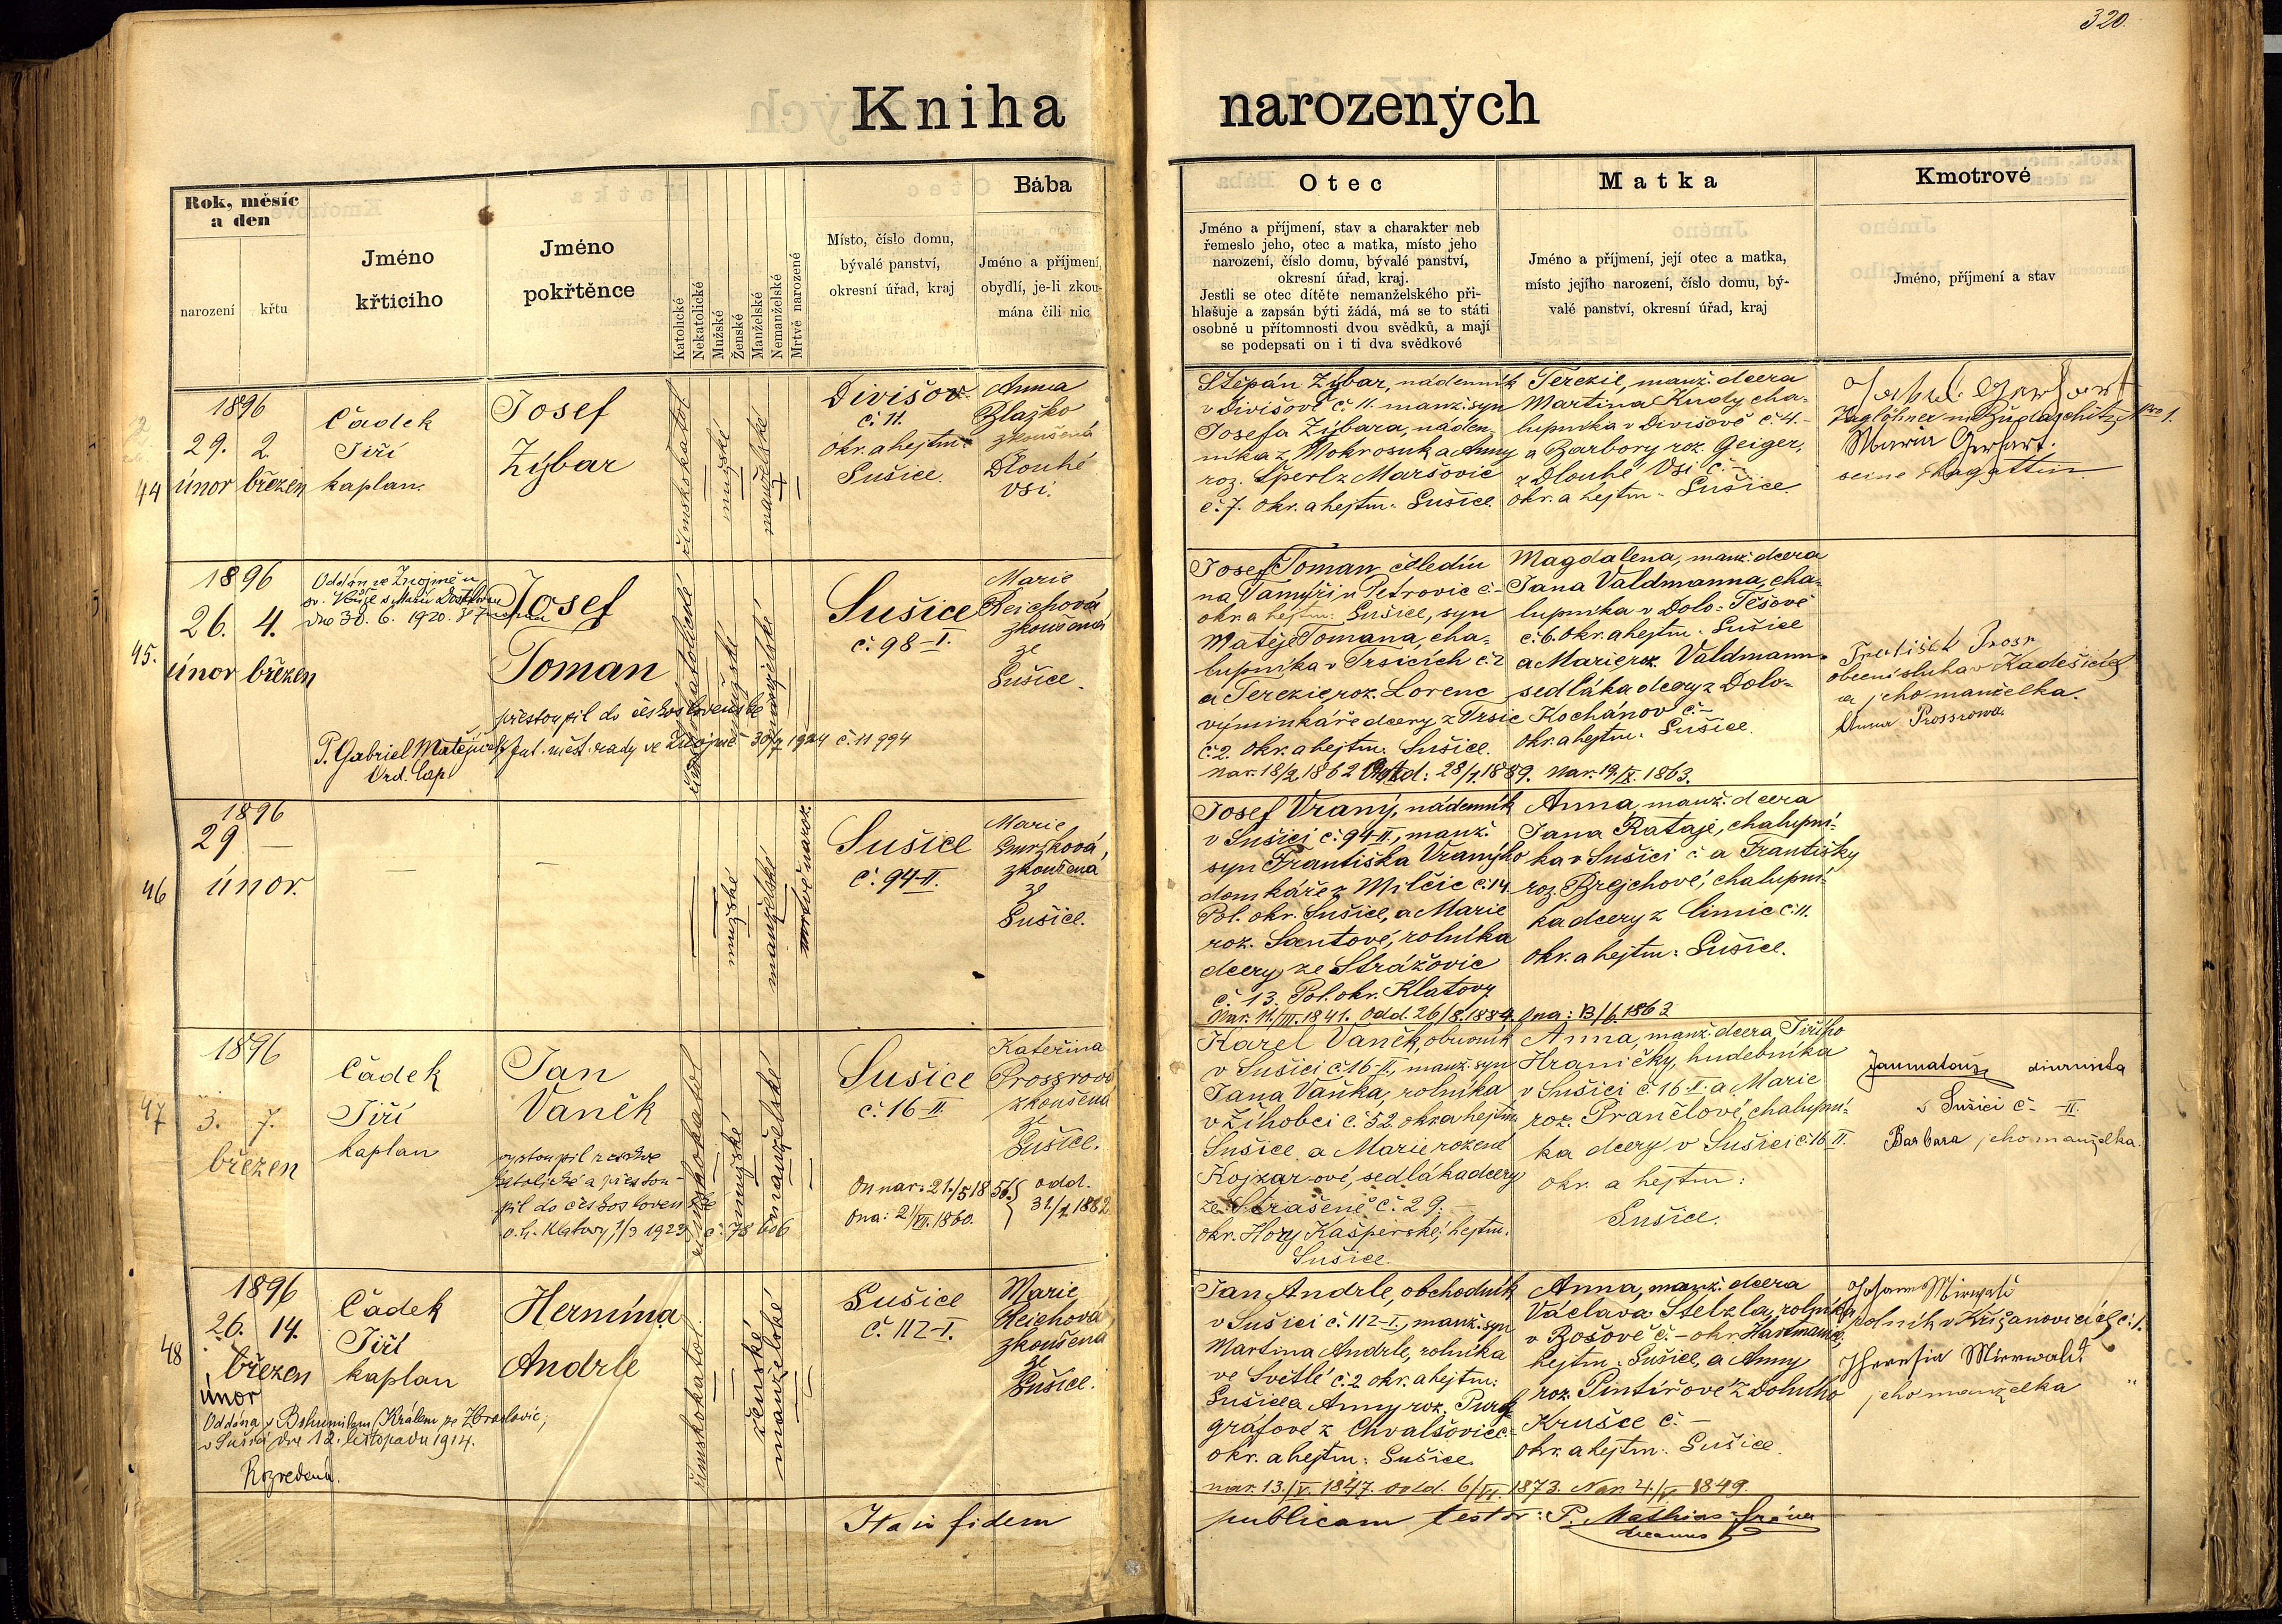 320.
Kniha narozených
Rok, měsíc
a den
narození
křtu
Jméno
křticího
Jméno
pokřtěnce
Katolické
Nekatolické
Mužské
Ženské
Manželské
Nemanželské
Mrtvě narozené
Místo, číslo domu,
bývalé panství,
okresní úřad, kraj
Bába
Jméno a příjmení,
obydlí, je-li zkou-
mána čili nic
Otec
Jméno a příjmení, stav a charakter neb
řemeslo jeho, otec a matka, místo jeho
narození, číslo domu, bývalé panství,
okresní úřad, kraj.
Jestli se otec dítěte nemanželského při-
hlašuje a zapsán býti žádá, má se to státi
osobně u přítomnosti dvou svědků, a mají
se podepsati on i ti dva svědkové
Matka
Jméno a příjmení, její otec a matka,
místo jejího narození, číslo domu, bý-
valé panství, okresní úřad, kraj
Kmotrové
Jméno, příjmení a stav
44
1896
29. 2.
únor březen
Čádek
Jiří
kaplan.
Josef
Zýbar
římskokatol.
mužské
manželské
Divišov
č. 11.
okr. a hejtm.
Sušice.
Anna
Blažko
zkoušená
Dlouhé
Vsi.
Štěpán Zýbar, nádenník
v Divišově č. 11. manž. syn
Josefa Zýbara, náden-
níka z Mokrosuk a Anny
roz. Šperl z Maršovic
č. 7. okr. a hejtm. Sušice.
Terezie, manž. dcera
Martina Kudy cha-
lupníka v Divišově č. 4.
a Barbory roz. Geiger,
z Dlouhé Vsi č. –
okr. a hejtm. Sušice.
Maria Gerhart.
seine
45.
1896
26. 4.
únor březen
Oddán ve Znojmě u
dne 30. 6. 1920.
Josef
Toman
přestoupil do československé
P. Gabriel Matějíček Int. měst. rady ve Znojmě 30/7 1924 č. 11994
Ord. Cap.
římskokatolické
mužské
manželské
Sušice
č. 98-I.
Marie
Reichová
zkoušená
ze
Sušice.
Josef Toman čeledín
na Vamýři u Petrovic č. –
okr. a hejtm. Sušice, syn
Matěje Tomana, cha-
lupníka v Trsicích č. 2
a Terezie roz. Lorenc
výminkáře dcery z Trsic
č. 2. okr. a hejtm. Sušice.
nar. 18/2 1862 Odd: 28/1. 1889. Nar. 19./IX. 1863.
Magdalena, manž. dcera
Jana Valdmanna, cha-
lupníka v Dolo-Těšově
č. 6. okr. a hejtm. Sušice
a Marie roz. Valdmann
sedláka dcery z Dolo-
Kochánov č. –
okr. a hejtm. Sušice.
obecní sluha v Kadešicích
a jeho manželka
Anna Prossrowa.
46
1896
29 –
únor.
–
–
mužské
manželské
mrtvě naroz.
Sušice
č. 94-II.
Marie
Smržková,
zkoušená
ze
Sušice.
Josef Vraný, nádenník
v Sušici č. 94-II., manž.
syn Františka Vraného
domkáře z Milčic č. 14.
Pol. okr. Sušice, a Marie
roz. Santové, rolníka
dcery ze Strážovic
č. 13. Pol. okr. Klatovy
Nar. 11./III. 1841. Odd. 26/8. 1884. Ona: 13/6. 1863
Anna, manž. dcera
Jana Rataje, chalupní-
ka v Sušici č. a Františky
roz. Brejchové, chalupní-
ka dcery z Čimic č. 11.
okr. a hejtm. Sušice.
47
1896
3. 7.
březen
Čádek
Jiří
kaplan
Jan
Vaněk
vystoupil z církve
katolické a přestou-
pil do československé
o. h. Klatovy 1/3 1923 č. 78606
římskokatol.
mužské
manželské
Sušice
č. 16-II.
Kateřina
Prossrová
zkoušená
ze
Sušice.
On nar: 21./5 1856. odd.
Ona: 21/VI. 1860. 31/1. 1882
Karel Vaněk, obuvník
v Sušici č. 16-II., manž. syn
Jana Vaňka, rolníka
v Žíhobci č. 52. okr. a hejtm.
Sušice a Marie rozené
Kojzarové, sedláka dcery
ze Strašeně č. 29.
okr. Hory Kašperské, hejtm.
Sušice.
Anna, manž. dcera Jiřího
Hraničky, hudebníka
v Sušici č. 16-II. a Marie
roz. Prančlové, chalupní-
ka dcery v Sušici č. 16-II.
okr. a hejtm:
Sušice.
diurnista
v Sušici č. -II.
Barbara jeho manželka.
48
1896
26. 14.
březen
únor
Oddána s Bohumilem Králem ze Zbraslavic;
v Sušici dne 12. listopadu 1914.
Rozvedená.
Čádek
Jiří
kaplan
Hermína
Andrle
římskokatol.
ženské
manželské
Sušice
č. 112-I.
Marie
Reichová
zkoušená
ze
Sušice.
Jan Andrle, obchodník
v Sušici č. 112-I., manž. syn
Martina Andrle, rolníka
ve Světlé č. 2 okr. a hejtm:
Sušice a Anny roz. Purk-
gráfové z Chvalšovic č. –
okr. a hejtm: Sušice.
nar. 13./V. 1847. odd. 6/VI. 1873. Nar. 4./V. 1849.
Anna, manž. dcera
Václava Stelzla, rolníka
v Bošově č. – okr. Hartmanic,
hejtm. Sušice, a Anny
roz. Pintířové z Dolního
Krušce č. –
okr. a hejtm. Sušice.
Johann Mirwald
rolník v Křižanovicích č. 1.
Theresia Mirwald
jeho manželka
Ita in fidem publicam testor: P. Mathias
decanus